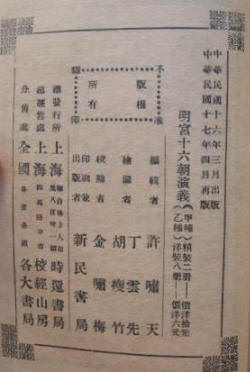 中華民國十六年三月出版
中華民國十七年四月再版
明宮十六朝演義
(甲種)精裝二冊 價洋拾元
(乙種)洋裝八冊 價洋六元
不准翻印
版權所有
編輯者 許嘯天
繪圖者 丁雲先
胡瘦竹
校閱者 金嘯梅
印刷兼出版者 新民書局
總發行所 上海 時還書局
總運售處 上海 校經山房
分售處 全國 各大書局